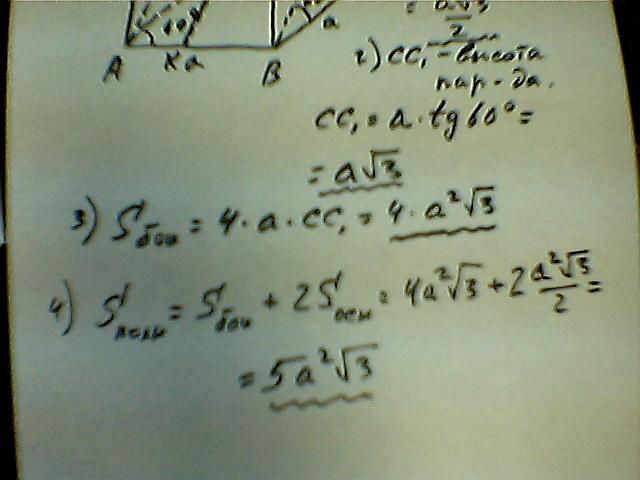 = a√3/2
a
60°
A K a B
2) CC₁ - высота
пар-да.
CC₁ = a · tg 60° =
= a√3
3) Sбок = 4 · a · CC₁ = 4 · a²√3
4) Sполн = Sбок + 2Sосн = 4a²√3 + 2 a²√3/2 =
= 5a²√3